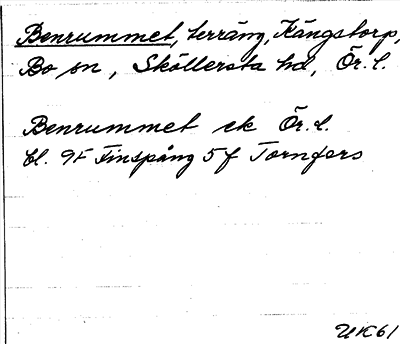 Benrummet, terräng, Kängstorp,
Bo sn, Sköllersta hd, Ör. l.
Benrummet ek Ör. l.
bl. 9F Finspång 5f Tornfors
UK61